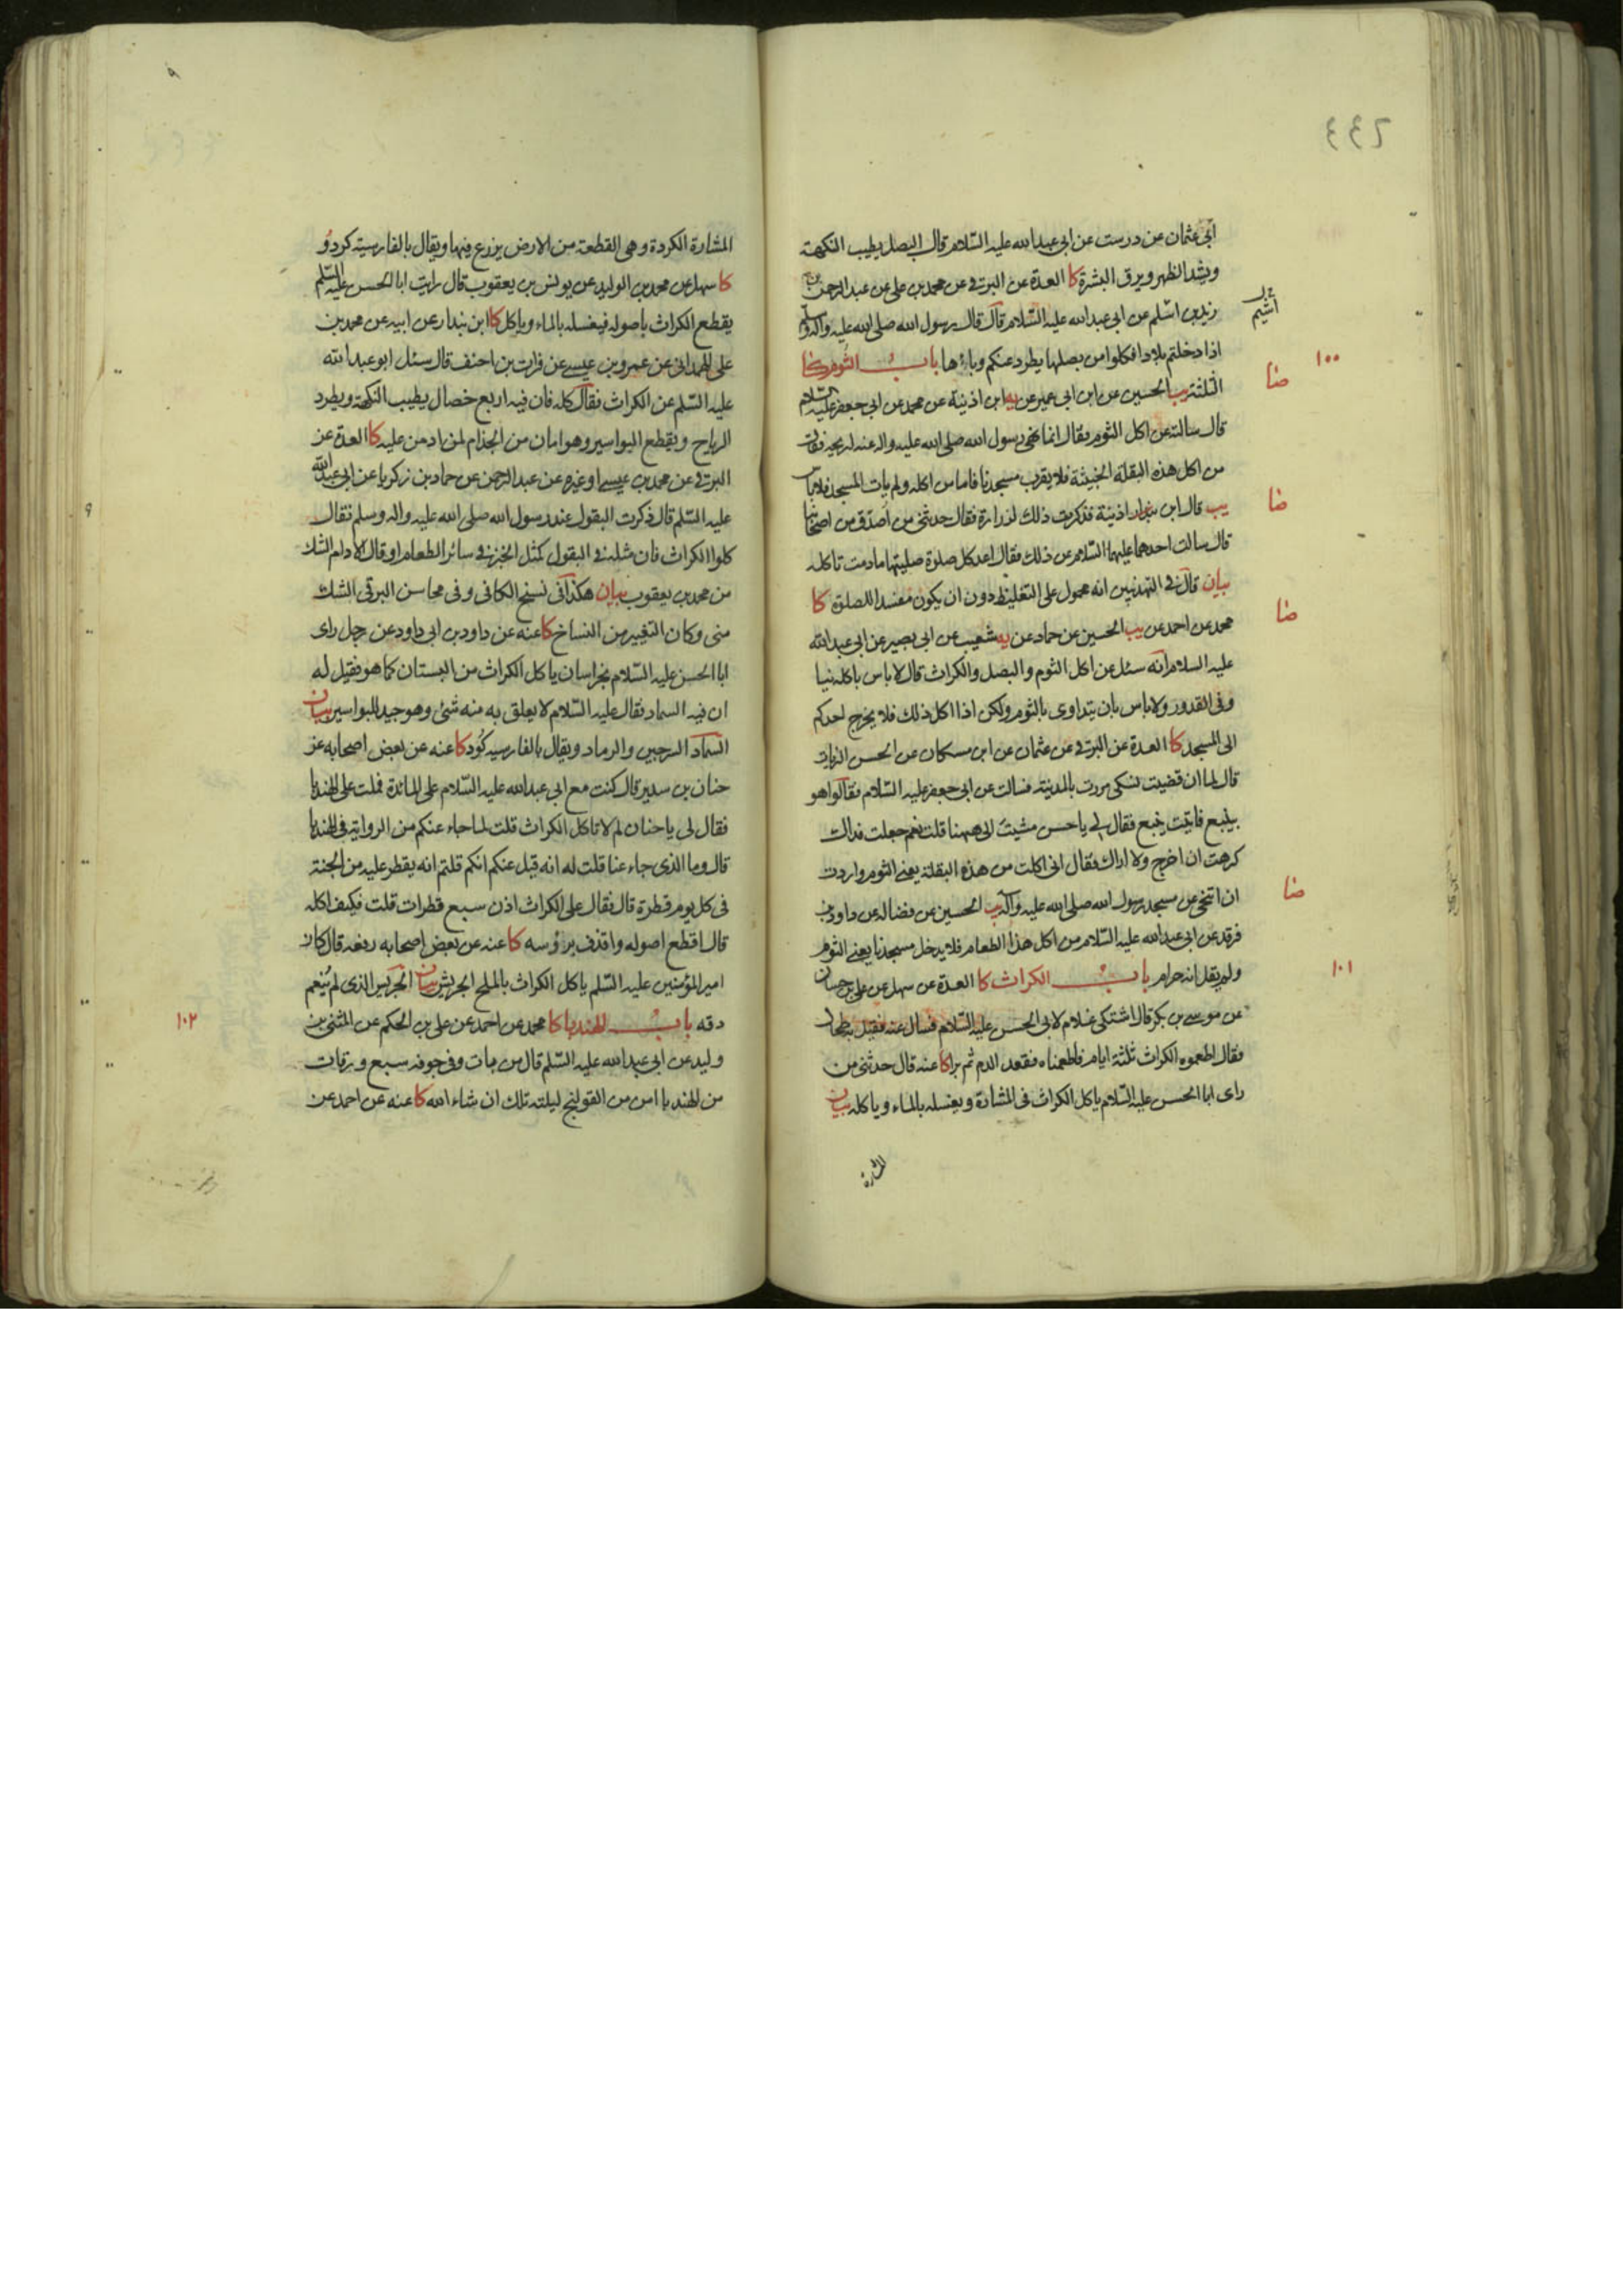 ٤٤٦
ابى عثمان عن درست عن ابى عبدالله عليه السّلام قال البصل يطيب النكهة
ويشد الظهر ويرق البشرة كا العدة عن البرقى عن محمد بن على عن عبدالرحمن بن
زيد بن اسلم عن ابى عبدالله عليه السّلام قال قال رسول الله صلى الله عليه واله وسلم
اذا دخلتم بلادا فكلوا من بصلها يطرد عنكم وباءها باب الثوم كا
١٠٠
الثلثة يب الحسين عن ابن ابى عمير عن يه ابن اذينة عن محمد عن ابى جعفر عليه السلام
صا
قال سالته عن اكل الثوم فقال انما نهى رسول الله صلى الله عليه واله عنه لريحه فقال
من اكل هذه البقلة الخبيثة فلا يقرب مسجدنا فاما من اكله ولم يات المسجد فلا باس
يب قال ابن اذينة فذكرت ذلك لزرارة فقال حدثنى من اصدق من اصحابنا
صا
قال سالت احدهما عليهما السّلام عن ذلك فقال اعد كل صلوة صليتها ما دمت تاكله
بيان قال فى التهذيبين انه محمول على التغليظ دون ان يكون مفسدا للصلوة كا
محمد عن احمد عن يب الحسين عن حماد عن يه شعيب عن ابى بصير عن ابى عبدالله
صا
عليه السلام انه سئل عن اكل الثوم والبصل والكراث قال لا باس باكله نيا
وفى القدور ولا باس بان يتداوى بالثوم ولكن اذا اكل ذلك فلا يخرج احدكم
الى المسجد كا العدة عن البرقى عن عثمان عن ابن مسكان عن الحسن الزيات
قال لما ان قضيت نسكى مررت بالمدينة فسالت عن ابى جعفر عليه السّلام فقالوا هو
بينبع فاتيت ينبع فقال لى يا حسن مشيت الى ههنا قلت نعم جعلت فداك
كرهت ان اخرج ولا اراك فقال انى اكلت من هذه البقلة يعنى الثوم واردت
ان اتنحى عن مسجد رسول الله صلى الله عليه واله يب الحسين عن فضالة عن داود بن
صا
فرقد عن ابى عبدالله عليه السّلام من اكل هذا الطعام فلا يدخل مسجدنا يعنى الثوم
ولم يقل انه حرام باب الكراث كا العدة عن سهل عن على بن حسان
١٠١
عن موسى بن بكر قال اشتكى غلام لابى الحسن عليه السّلام فسال عنه فقيل به طحال
فقال اطعموه الكراث ثلثة ايام فاطعمناه فقعد الدم ثم برا كا عنه قال حدثنى من
راى ابا الحسن عليه السّلام ياكل الكراث فى المشارة ويغسله بالماء وياكله بيان
المشارة
المشارة الكردة وهى القطعة من الارض يزرع فيها ويقال بالفارسية كردو
كا سهل عن محمد بن الوليد عن يونس بن يعقوب قال رايت ابا الحسن عليه السّلم
يقطع الكراث باصوله فيغسله بالماء وياكل كا ابن بندار عن ابيه عن محمد بن
على الهمدانى عن عمرو بن عيسى عن فرات بن احنف قال سئل ابو عبدالله
عليه السّلم عن الكراث فقال كله فان فيه اربع خصال يطيب النكهة ويطرد
الرياح ويقطع البواسير وهو امان من الجذام لمن ادمن عليه كا العدة عن
البرقى عن محمد بن عيسى او غيره عن عبدالرحمن عن حماد بن زكريا عن ابى عبدالله
عليه السّلم قال ذكرت البقول عند رسول الله صلى الله عليه واله وسلم فقال
كلوا الكراث فان مثله فى البقول كمثل الخبز فى سائر الطعام او قال الادام الشك
من محمد بن يعقوب بيان هكذا فى نسخ الكافى وفى محاسن البرقى الشك
منى وكان التغيير من النساخ كا عنه عن داود بن ابى داود عن رجل راى
ابا الحسن عليه السّلام بخراسان ياكل الكراث من البستان كما هو فقيل له
ان فيه السماد فقال عليه السّلام لا يعلق به منه شئ وهو جيد للبواسير بيان
السماد السرجين والرماد ويقال بالفارسية كود كا عنه عن بعض اصحابه عن
حنان بن سدير قال كنت مع ابى عبدالله عليه السّلام على المائدة فملت على الهندبا
فقال لى يا حنان لم لا تاكل الكراث قلت لما جاء عنكم من الرواية فى الهندبا
قال وما الذى جاء عنا قلت له انه قيل عنكم انكم قلتم انه يقطر عليه من الجنة
فى كل يوم قطرة قال فقال على الكراث اذن سبع قطرات قلت فكيف اكله
قال اقطع اصوله واقذف برؤسه كا عنه عن بعض اصحابه رفعه قال كان
امير المؤمنين عليه السّلم ياكل الكراث بالملح الجريش بيان الجريش الذى لم ينعم
دقه باب الهندبا كا محمد عن احمد عن على بن الحكم عن المثنى بن
١٠٢
وليد عن ابى عبدالله عليه السّلم قال من بات وفى جوفه سبع ورقات
من الهندبا امن من القولنج ليلته تلك ان شاء الله كا عنه عن احمد عن